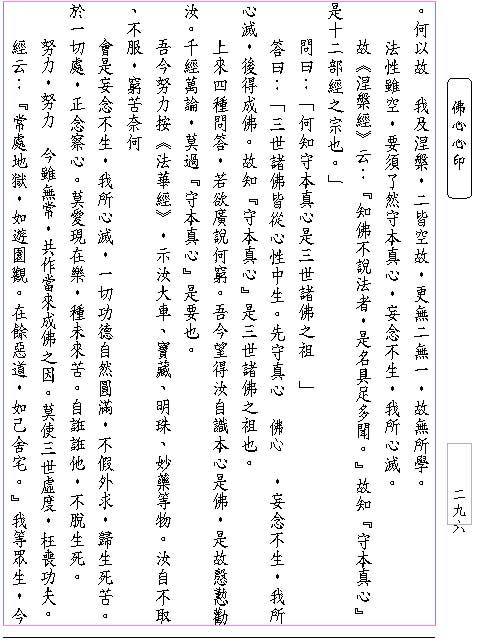 。何以故　我及涅槃，二皆空故，更無二無一，故無所學。
法性雖空，要須了然守本真心，妄念不生，我所心滅。
故《涅槃經》云：『知佛不說法者，是名具足多聞。』故知『守本真心』
是十二部經之宗也。」
問曰：「何知守本真心是三世諸佛之祖　」
答曰：「三世諸佛皆從心性中生。先守真心　佛心　，妄念不生，我所
心滅，後得成佛。故知『守本真心』是三世諸佛之祖也。
上來四種問答，若欲廣說何窮。吾今望得汝自識本心是佛，是故慇懃勸
汝。千經萬論，莫過『守本真心』是要也。
吾今努力按《法華經》，示汝大車、寶藏、明珠、妙藥等物。汝自不取
、不服，窮苦奈何
會是妄念不生，我所心滅，一切功德自然圓滿，不假外求，歸生死苦。
於一切處，正念察心。莫愛現在樂，種未來苦。自誑誑他，不脫生死。
努力，努力　今雖無常，共作當來成佛之因。莫使三世虛度，枉喪功夫。
經云：『常處地獄，如遊園觀。在餘惡道，如己舍宅。』我等眾生，今
佛心心印
二九六